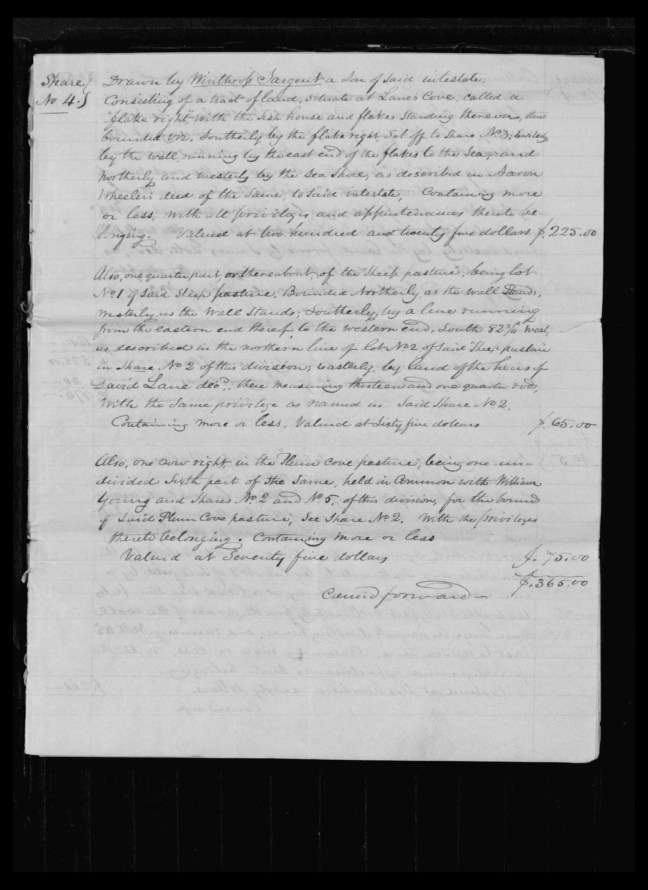 Share } Drawn by Winthrop Sargent a Son of Said intestate,
No 4. } Consisting of a tract of land, situate at Lane's Cove, called a
flake right with the fish house and flakes Standing thereon, thus
bounded viz. Southerly by the flake right, Set off to Share No 3; Easterly
by the wall, running by the east end of the flakes to the Sea, and
northerly and westerly by the Sea Shore, as described in Aaron
Wheeler's deed of the Same, to Said intestate, Containing more
or less, with all privileges and appurtenances thereto be-
longing. Valued at two hundred and twenty five dollars $.225.00
Also, one quarter part, or thereabout, of the Sheep pasture, being lot
No 1 of Said Sheep pasture, Bounded Northerly as the wall Stands,
westerly as the Wall Stands, Southerly, by a line running
from the eastern end thereof, to the western end, South 82½° west,
as described in the northern line of lot No 2 of Said Sheep pasture
in Share No 2 of this division, Easterly, by land of the heirs of
David Lane dec'd. there measuring thirteen and one quarter rods,
With the Same privilege as named in Said Share No 2.
Containing more or less. Valued at Sixty five dollars $.65.00
Also, one cow right in the Plum cove pasture, being one un-
divided Sixth part of the Same, held in Common with William
Young and Shares No 2 and No 5, of this division, for the bounds
of Said Plum Cove pasture, See Share No 2. With the privileges
thereto belonging. Containing more or less
Valued at Seventy five dollars $.75.00
$.365.00
Carried forward